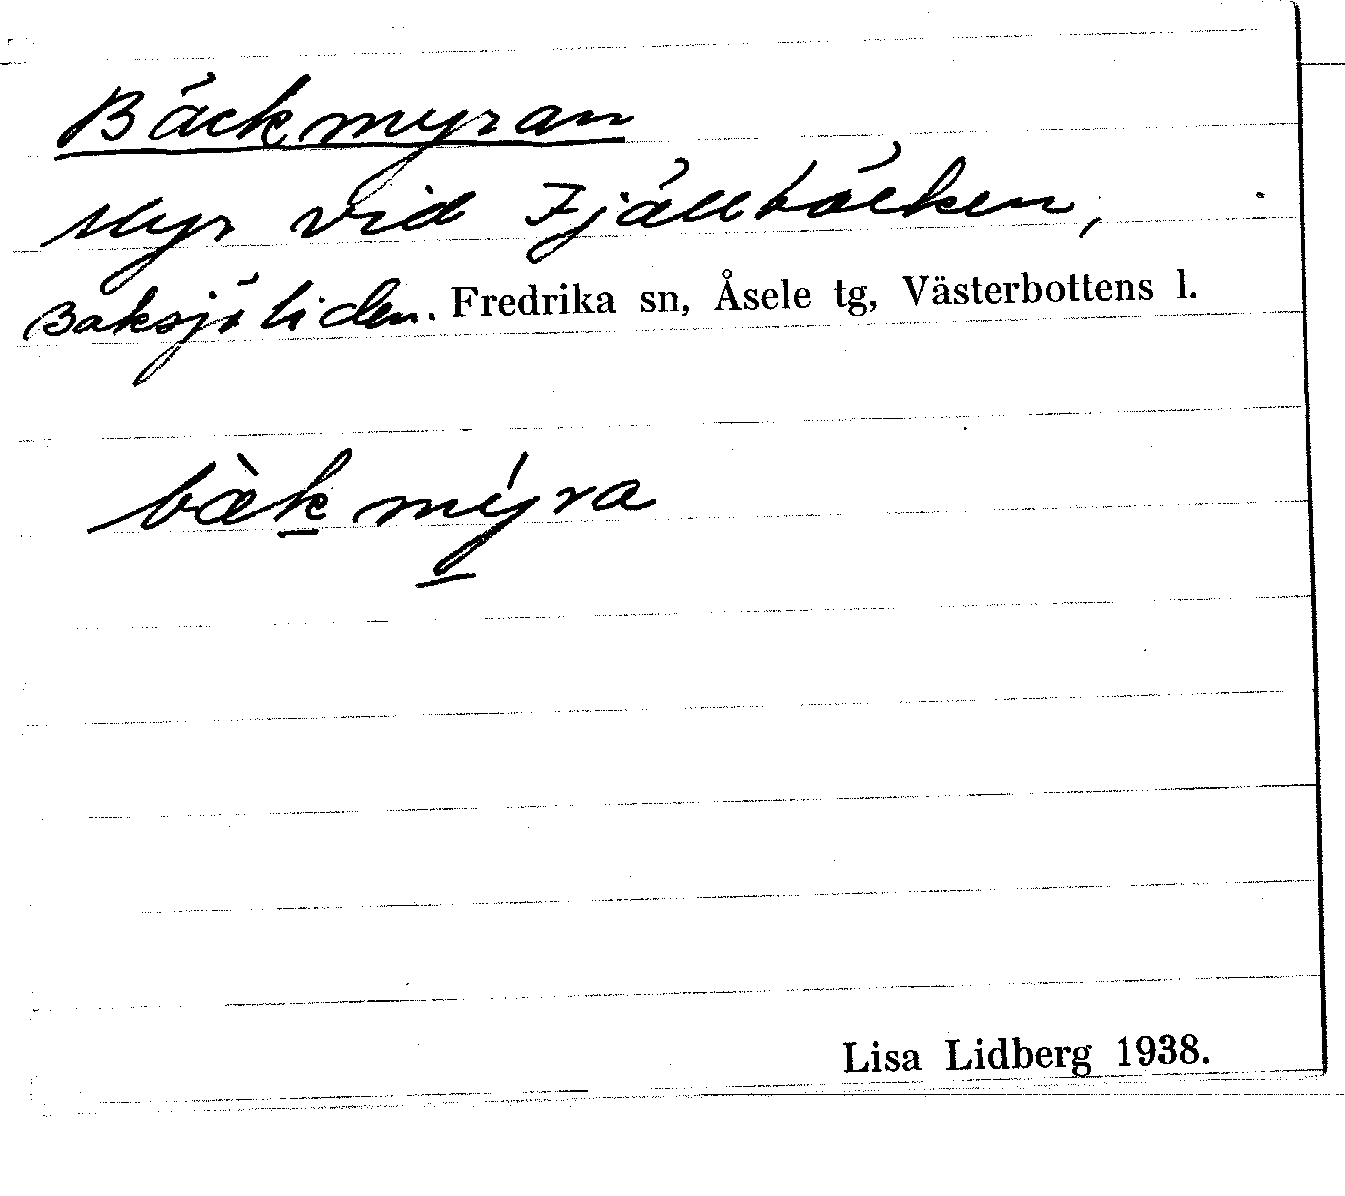 Bäckmyran
Myr vid Fjällbäcken,
Baksjöliden. Fredrika sn, Åsele tg, Västerbottens l.
bæ̀k̲mý̲ra
Lisa Lidberg 1938.